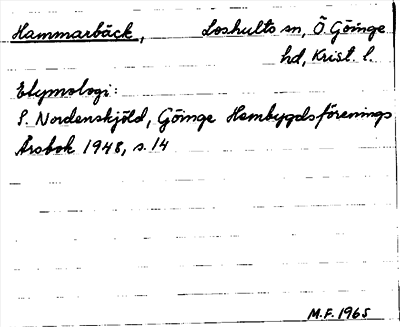 Hammarbäck, Loshults sn, Ö. Göinge
hd, Krist. l.
Etymologi:
S. Nordenskjöld, Göinge Hembygdsförenings
Årsbok 1948, s. 14
M.F. 1965